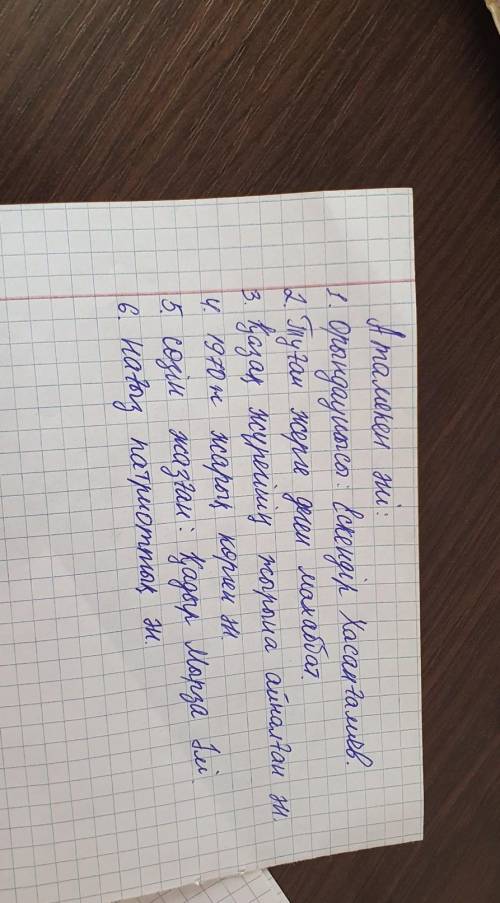 Атамекен әні:
1. Орындаушысы: Ескендір Хасанғалиев.
2. Туған жерге деген махаббат.
3 Қазақ жүрегінің жырына айналған ән.
4. 1970ж жарық көрген ән.
5. Сөзін жазған: Қадыр Мырза Әлі.
6. Нағыз патриоттық ән.